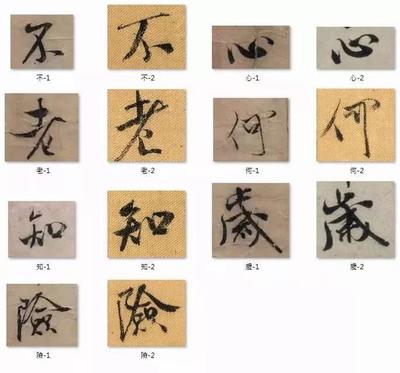 不 不 心 心
不-1 不-2 心-1 心-2
老 老 何 何
老-1 老-2 何-1 何-2
知 知 歲 歲
知-1 知-2 歲-1 歲-2
險 險
險-1 險-2